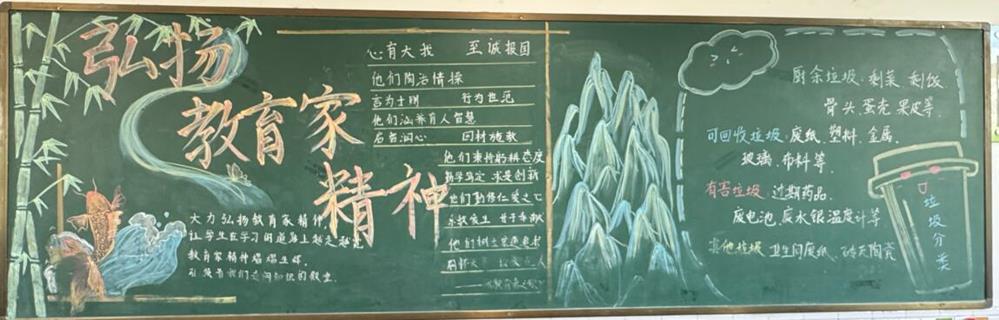 弘扬
教育家
精神
大力弘扬教育家精神
让学生在学习的道路上越走越远
教育家精神熠熠生辉
心有大我 至诚报国
他们陶冶情操
言为士则 行为世范
他们涵养育人智慧
启智润心 因材施教
他们秉持躬耕态度
勤学笃定 求是创新
他们勤修仁爱之心
乐教爱生 甘于奉献
他们树立弘道追求
厨余垃圾:剩菜 剩饭
骨头、蛋壳 果皮等.
可回收垃圾:废纸、塑料、金属、
玻璃、布料等.
有害垃圾:过期药品、
废电池、废水银温度计等
其他垃圾:卫生间废纸、破瓦陶瓷
垃圾分类